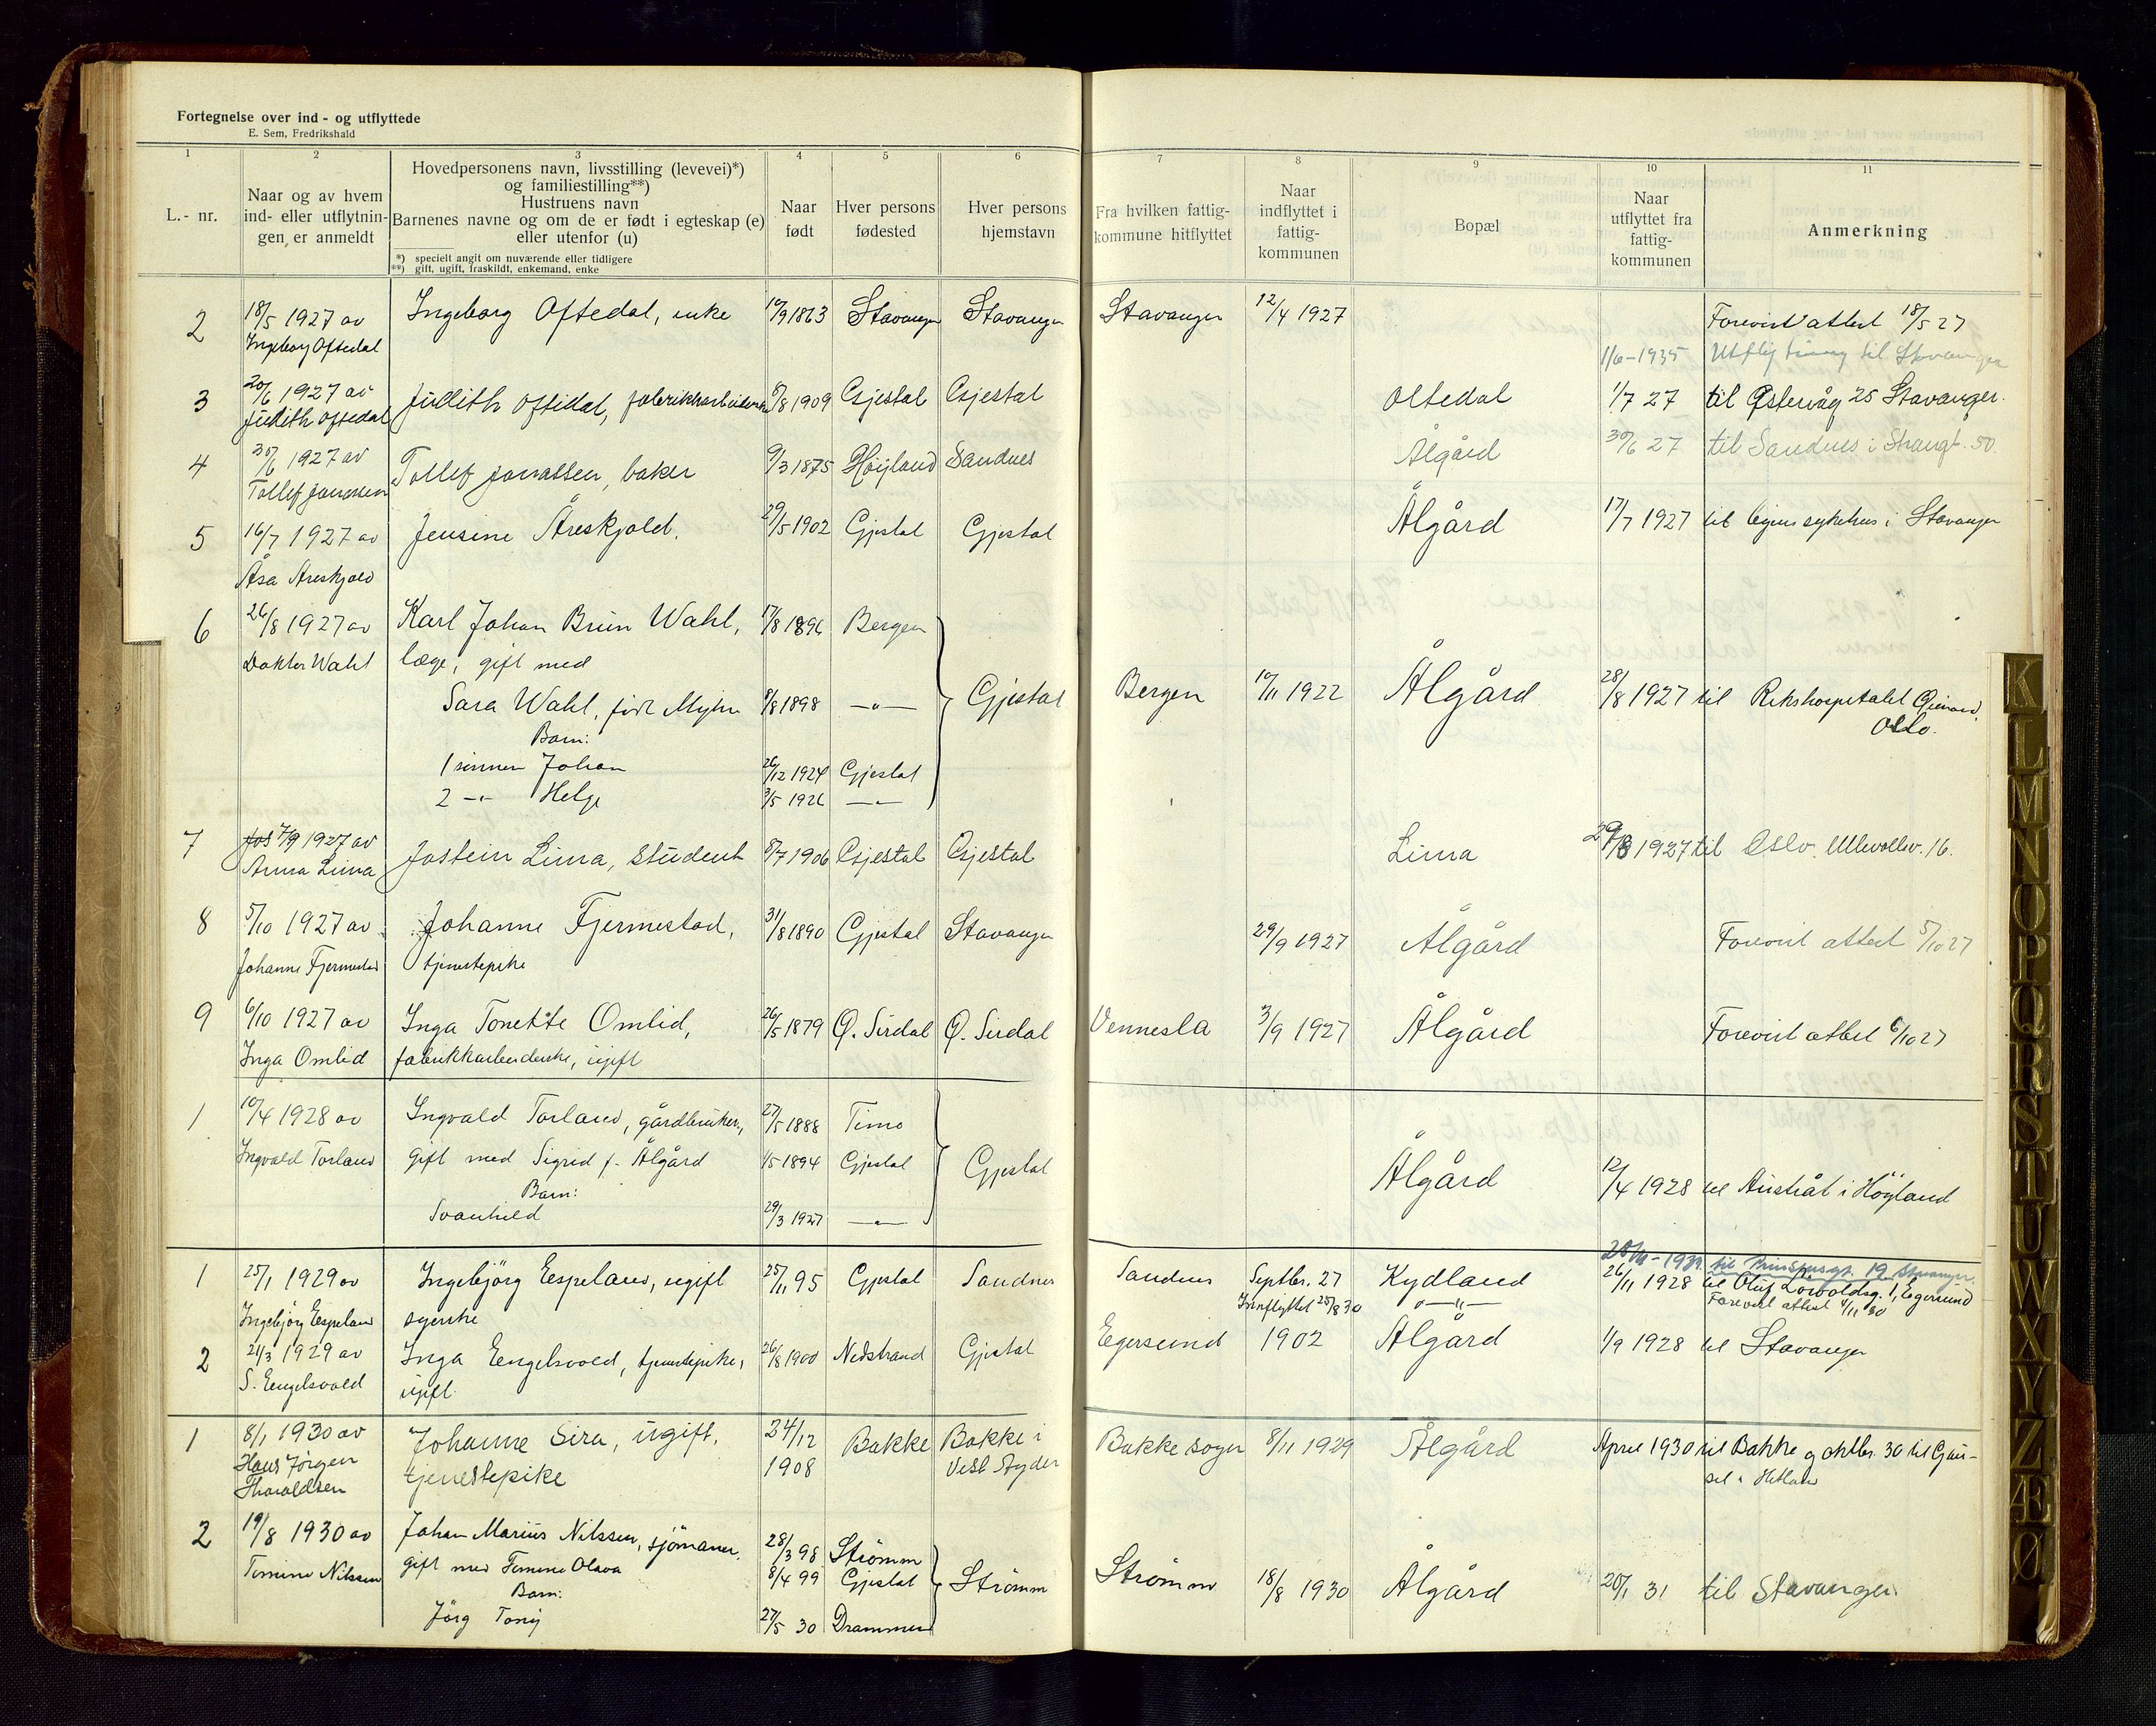 Fortegnelse over ind - og utflyttede
E. Sem, Fredrikshald
1 2 3 4 5 6 7 8 9 10 11
L.- nr.
Naar og av hvem
ind- eller utflytnin-
gen er anmeldt
Hovedpersonens navn, livsstilling (levevei)*)
og familiestilling**)
Hustruens navn
Barnenes navne og om de er født i egteskap (e)
eller utenfor (u)
*) specielt angit om nuværende eller tidligere
**) gift, ugift, fraskildt, enkemand, enke
Naar
født
Hver persons
fødested
Hver persons
hjemstavn
Fra hvilken fattig-
kommune hitflyttet
Naar
indflyttet i
fattig-
kommunen
Bopæl
Naar
utflyttet fra
fattig-
kommunen
Anmerkning
2 18/5 1927 av Ingeborg Oftedal, enke Stavanger Stavanger Stavanger 12/4 1927 Forevist attest 18/5 27
Ingeborg Oftedal 1/6-1935 til Stavanger
3 20/6 1927 av Judith Oftedal, fabrikkarbeiderske 6/8 1909 Gjestal Gjestal Oltedal 1/7 27 til Østervåg 25 Stavanger.
Judith Oftedal
4 30/6 1927 av Tollef Jonassen, baker 9/3 1875 Høiland Sandnes Ålgård 30/6 27 til Sandnes i Strangt. 50.
Tollef Jonassen
5 16/7 1927 av Jensine Åreskjold. 29/5 1902 Gjestal Gjestal Ålgård 17/7 1927 til sykehus i Stavanger
Åsa Åreskjold
6 26/8 1927 av Karl Johan Brun Wahl, 17/8 1896 Bergen
Doktor Wahl læge, gift med
Sara Wahl, født Myhre 8/8 1898 —"— Gjestal Bergen 1922 Ålgård 28/8 1927 til Rikshospitalet
Oslo.
Barn:
1 sønnen Johan 26/12 1924 Gjestal
2 -"- Helge 3/5 1926 —"—
7 7/9 1927 av Jostein Lima, student 8/7 1906 Gjestal Gjestal Lima 29/8 1927 til Oslo, Ullevollsv. 16.
Anna Lima
8 5/10 1927 av Johanne Fjermestad, 31/8 1890 Gjestal Stavanger 29/9 1927 Ålgård Forevist attest 5/10 27
Johanne Fjermestad tjenestepike
9 6/10 1927 av Inga Tonette Omlid, 26/5 1879 Ø. Sirdal Ø. Sirdal Vennesla 3/9 1927 Ålgård Forevist attest 6/10 27
Inga Omlid fabrikkarbeiderske, ugift
1 10/4 1928 av Ingvald Torland, gårdbruker, 27/5 1888 Time
Ingvald Torland gift med Sigrid f. Ålgård 1/5 1894 Gjestal Gjestal Ålgård 12/4 1928 til Austråt i Höyland
Barn:
Svanhild 29/3 1927 —"—
28/11-1931. til Prinsensgt. 19 Stavanger.
1 25/1 1929 av Ingebjörg Espeland, ugift 25/11 95 Gjestal Sandnes Sandnes Septbr. 27 Kydland 26/11 1928 til Oluf Löwoldsg. 1, Egersund
Ingebjörg Espeland syerske Innflyttet 25/8 30 "—"— Forevist attest 4/11 30
2 21/3 1929 av Inga Eengelsvold, tjenestepike, 26/8 1900 Nedstrand Gjestal Egersund 1902 Ålgård 1/9 1928 til Stavanger
S. Eengelsvold ugift.
1 8/1 1930 av Johanne Sira, ugift, 24/12 Bakke Bakke i Bakke sogn 8/11 1929 Ålgård April 1930 til Bakke og oktbr. 30 til Gjau-
Hans Jörgen tjenestepike 1908 Vest Agder sel i Hetland
Tharaldsen
2 19/8 1930 av Johan Marius Nilssen, sjömann, 28/3 98 Strömm
Temine Nilssen gift med Temine Olava 8/4 99 Gjestal Strömm Strömm 18/8 1930 Ålgård 20/1 31 til Stavanger
Barn:
Jörg Tonij 27/5 30 Drammen
K
L
M
N
O
P
Q
R
S
T
U
W
X
Y
Z
Æ
Ø